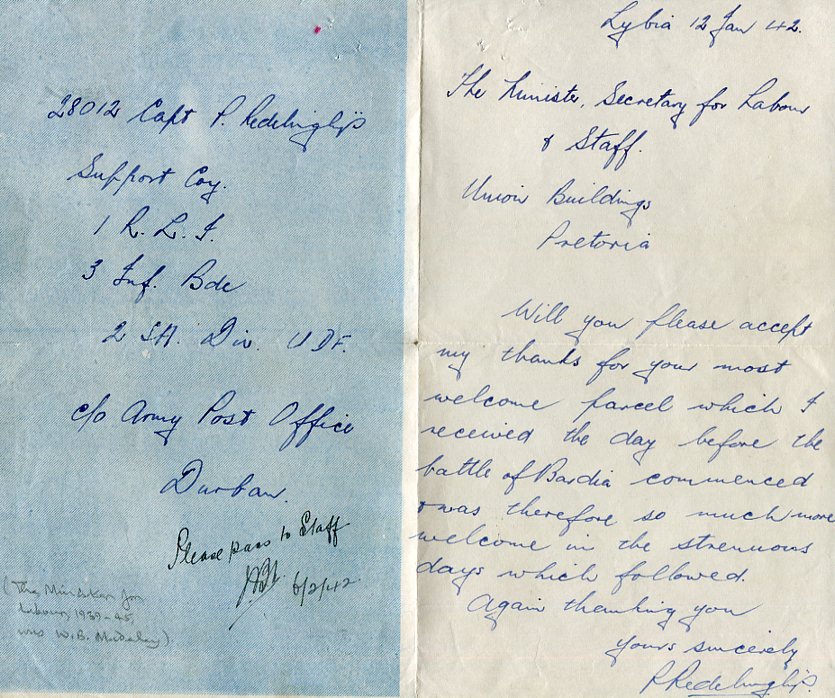 28012 Capt P. Redelinghijs
Support Coy.
1 R. L. I.
3 Inf. Bde
2 SA. Div. UDF.
c/o Army Post Office
Durban.
Please pass to Staff
6/2/42
(The Minister for
Labour, 1939-45,
was W.B. Madeley)
Lybia 12 Jan 42.
The Minister, Secretary for Labour
& Staff.
Union Buildings
Pretoria
Will you please accept
my thanks for your most
welcome parcel which I
received the day before the
battle of Bardia commenced
& was therefore so much more
welcome in the strenuous
days which followed.
Again thanking you
Yours sincerely
P. Redelinghijs.